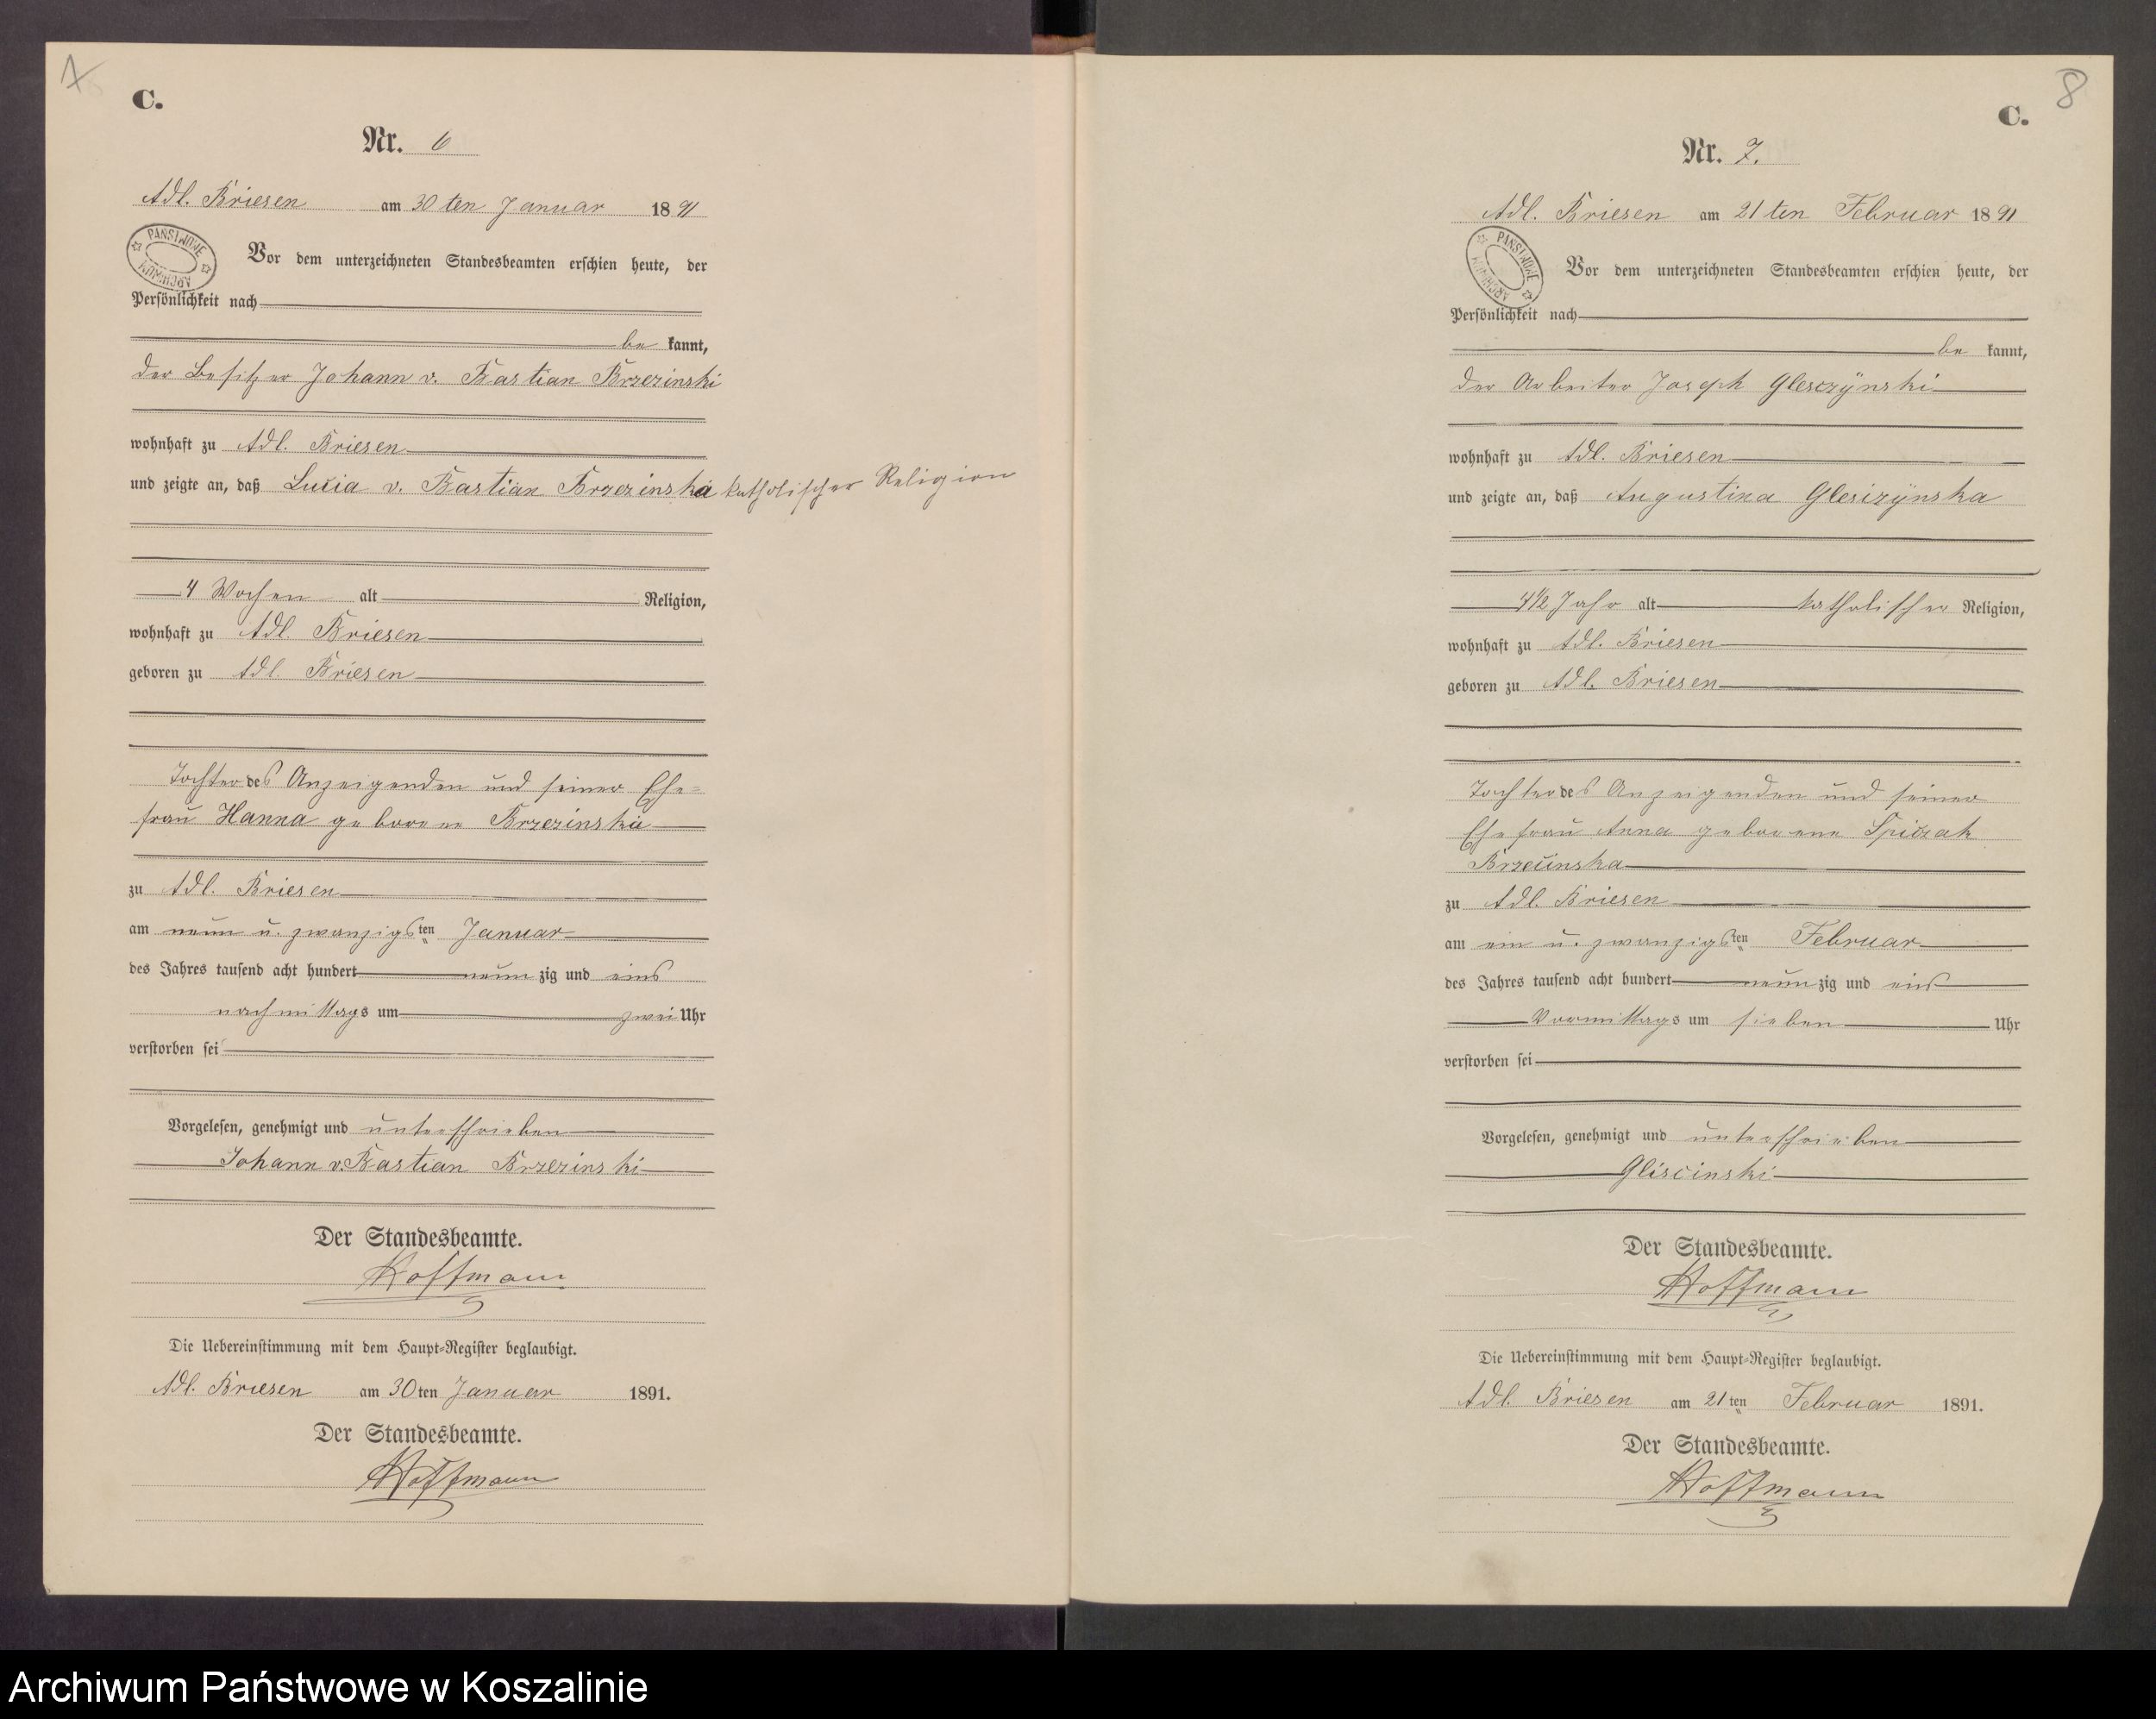 C.
Nr. 6
Adl. Briesen am 30 ten Januar 1891
PAŃSTWOWE ARCHIWUM
Vor dem unterzeichneten Standesbeamten erschien heute, der
Persönlichkeit nach
be kannt,
der Besitzer Johann v. Bastian Brzezinski
wohnhaft zu Adl. Briesen
und zeigte an, daß Lucia v. Bastian Brzezinska katholischer Religion
4 Wochen alt Religion,
wohnhaft zu Adl. Briesen
geboren zu Adl. Briesen
Tochter des Anzeigenden und seiner Ehe=
frau Hanna geborene Brzezinska
zu Adl. Briesen
am neun u. zwanzigsten Januar
des Jahres tausend acht hundert neun zig und eins
nachmittags um zwei Uhr
verstorben sei
Vorgelesen, genehmigt und unterschrieben
Johann v. Bastian Brzezinski
Der Standesbeamte.
Hoffmann
Die Uebereinstimmung mit dem Haupt-Register beglaubigt.
Adl. Briesen am 30ten Januar 1891.
Der Standesbeamte.
Hoffmann
8
C.
Nr. 7.
Adl. Briesen am 21 ten Februar 1891
PAŃSTWOWE ARCHIWUM
Vor dem unterzeichneten Standesbeamten erschien heute, der
Persönlichkeit nach
be kannt,
der Arbeiter Joseph Glesczÿnski
wohnhaft zu Adl. Briesen
und zeigte an, daß Augustina Glesczÿnska
4½ Jahr alt katholischer Religion,
wohnhaft zu Adl. Briesen
geboren zu Adl. Briesen
Tochter des Anzeigenden und seiner
Ehefrau Anna geborene Spiczak
Brzezinska
zu Adl. Briesen
am ein u. zwanzigsten Februar
des Jahres tausend acht hundert neun zig und eins
Vormittags um sieben Uhr
verstorben sei
Vorgelesen, genehmigt und unterschrieben
Gliscinski
Der Standesbeamte.
Hoffmann
Die Uebereinstimmung mit dem Haupt-Register beglaubigt.
Adl. Briesen am 21ten Februar 1891.
Der Standesbeamte.
Hoffmann
Archiwum Państwowe w Koszalinie